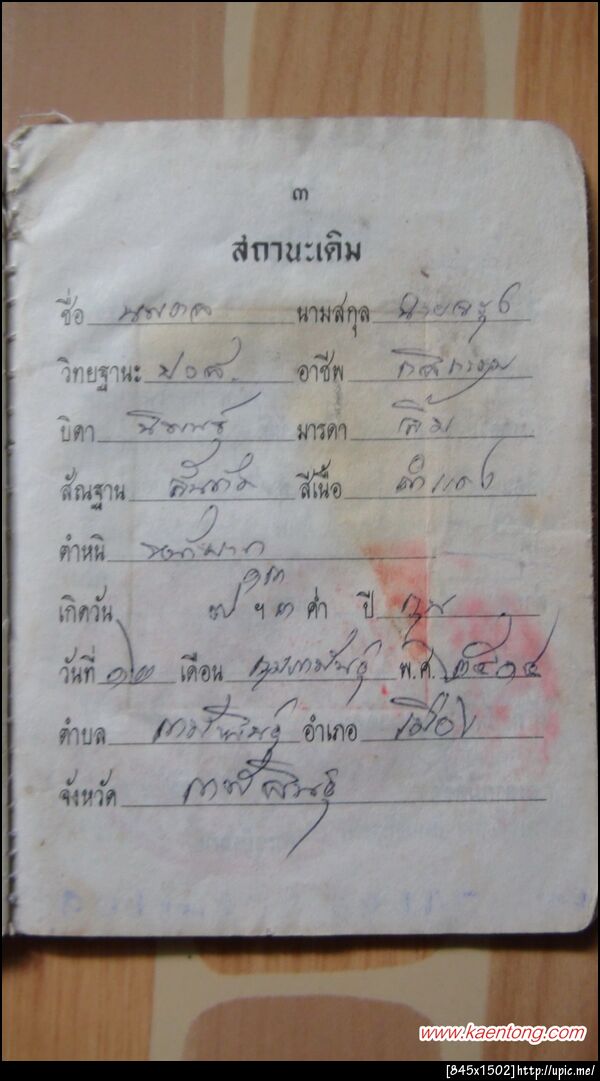 ๓
สถานะเดิม
ชื่อ นามสกุล
วิทยฐานะ ป๐ส. อาชีพ กสิกรรม
บิดา มารดา ลิ้ม
สัณฐาน สันทัด สีเนื้อ ดำแดง
ตำหนิ
เกิดวัน ๗ ฯ ๓ ค่ำ ปี กุน
วันที่ ๑๒ เดือน กุมภาพันธุ์ พ.ศ. ๒๕๑๔
ตำบล กาฬสินธุ์ อำเภอ เมือง
จังหวัด กาฬสินธุ์
www.kaentong.com
[845x1502]http://upic.me/